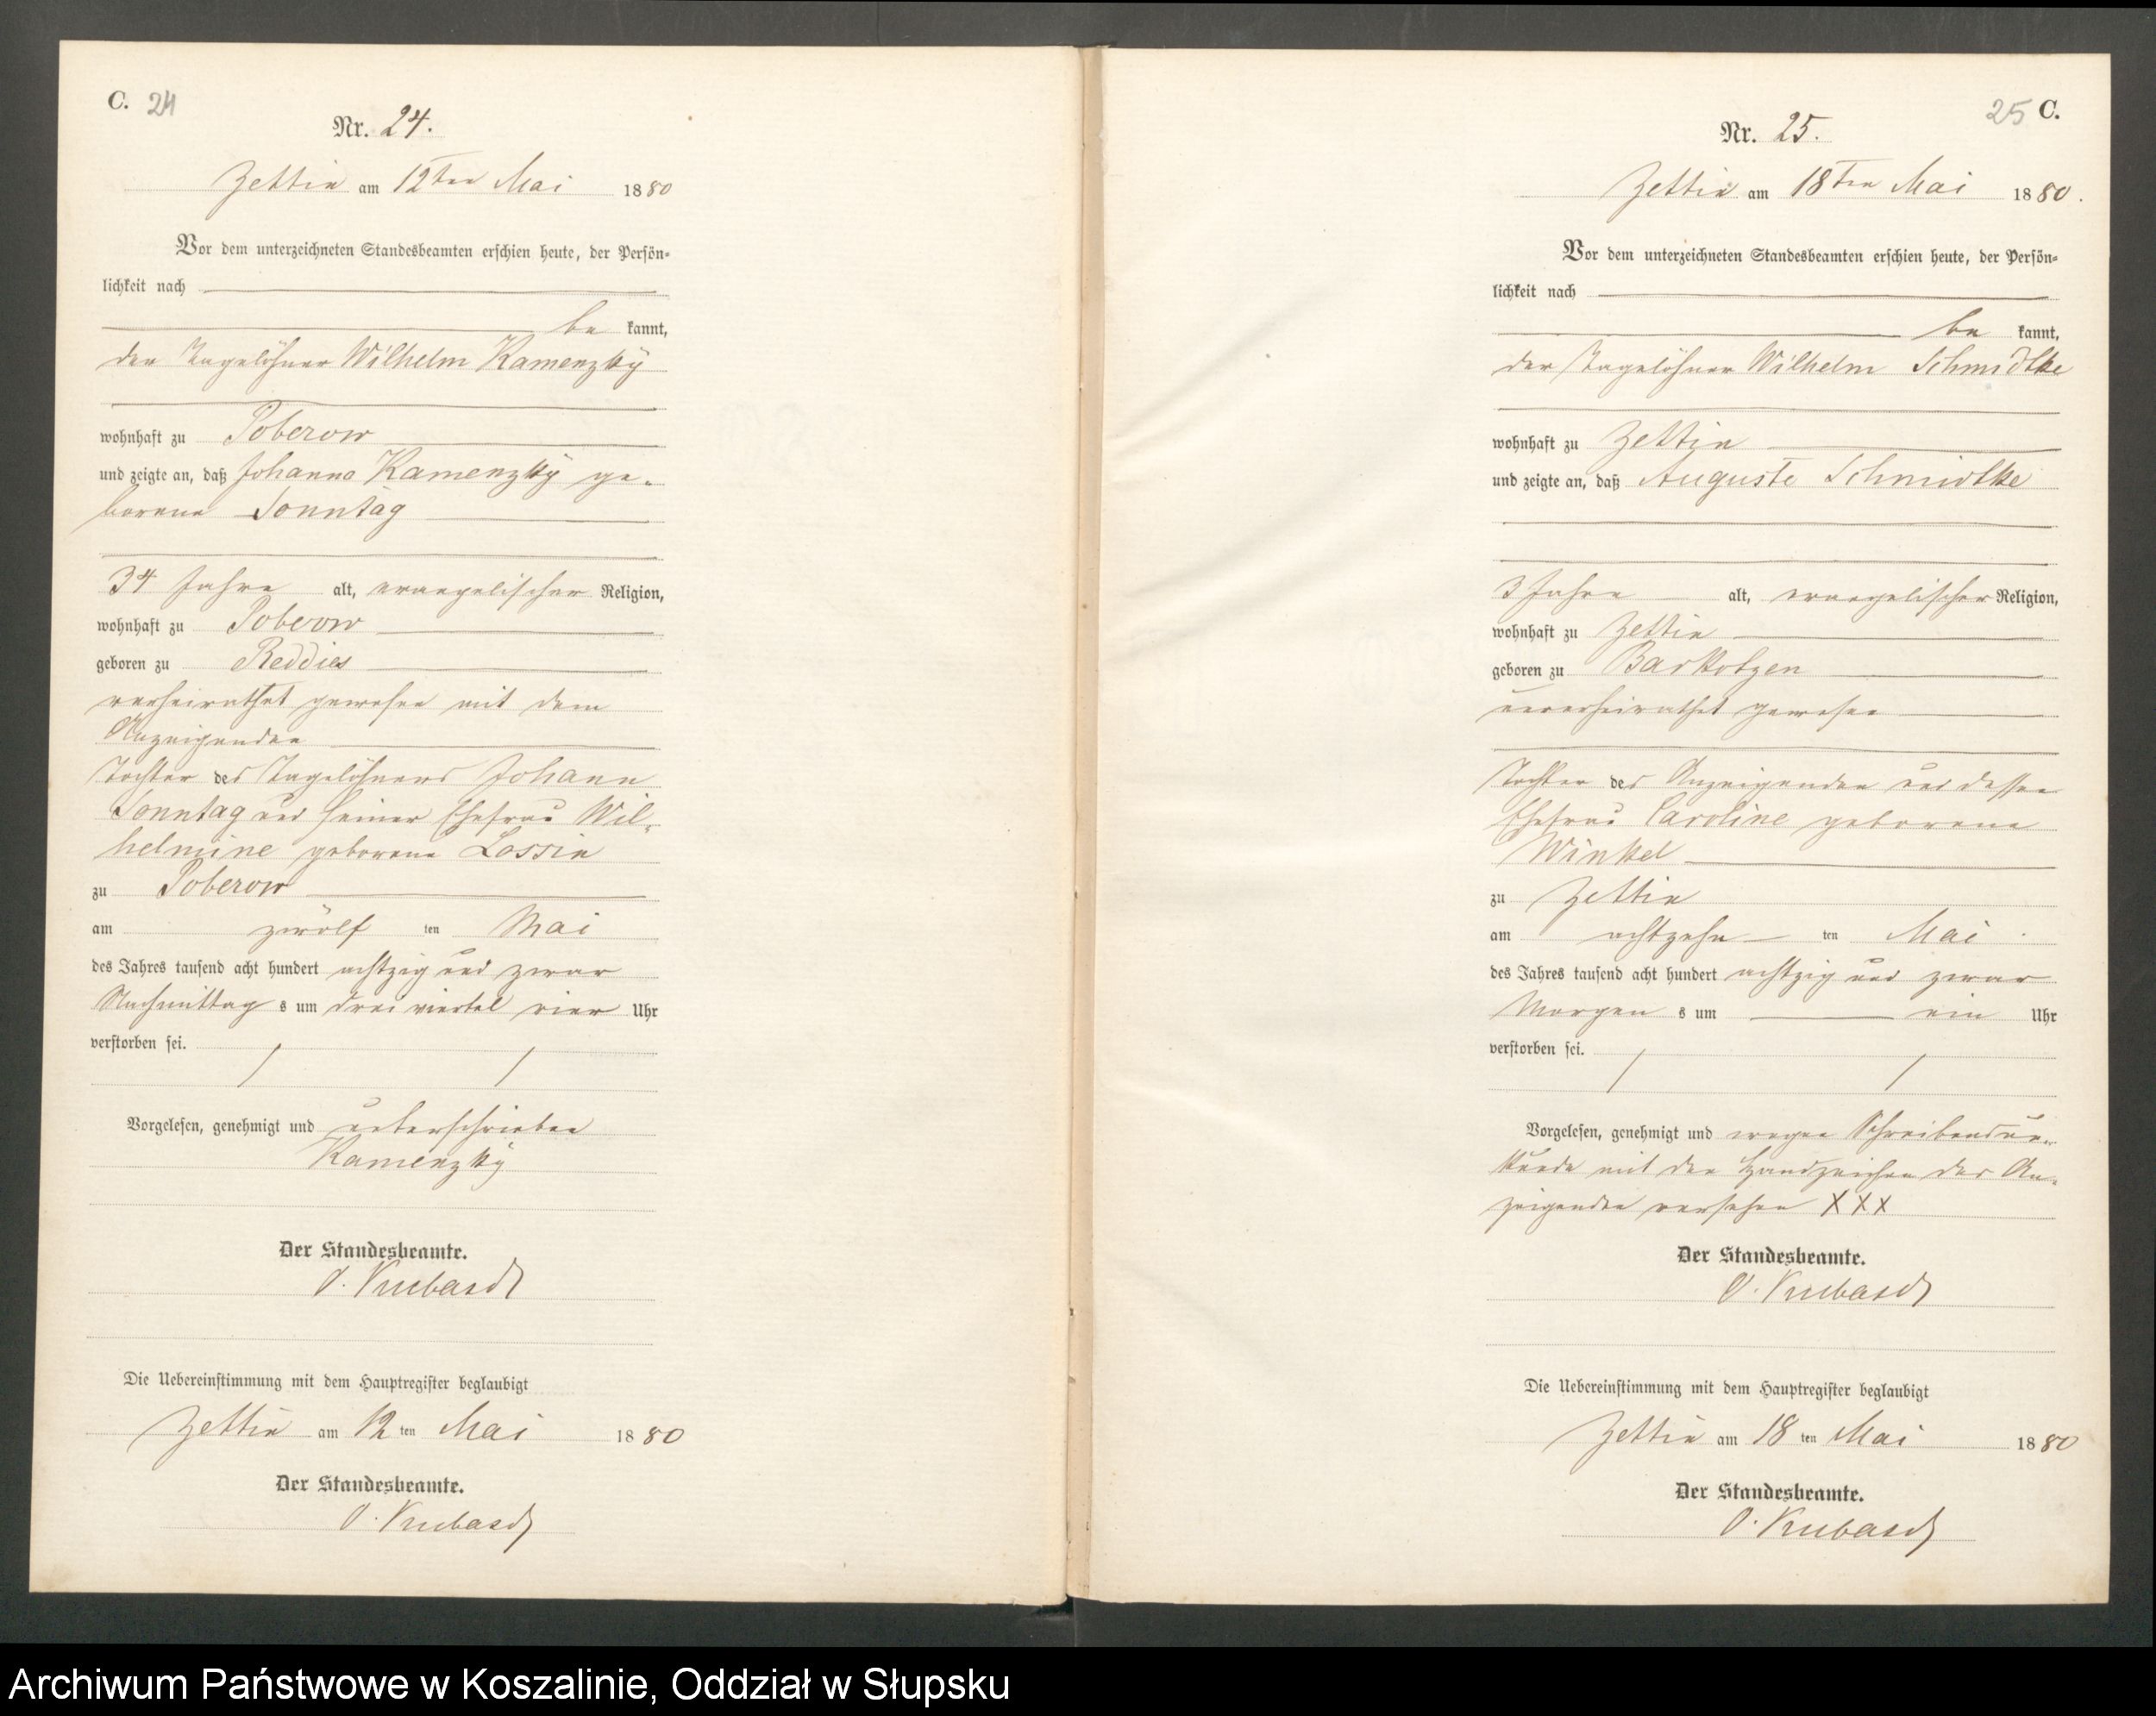 C. 24
Nr. 24.
Zettin am 12ten Mai 1880
Vor dem unterzeichneten Standesbeamten erschien heute, der Persön-
lichkeit nach
be kannt,
der Tagelöhner Wilhelm Kamenzky
wohnhaft zu Poberow
und zeigte an, daß Johanna Kamenzky ge-
borene Sonntag
34 Jahre alt, evangelischer Religion,
wohnhaft zu Poberow
geboren zu Reddies
verheirathet gewesen mit dem
Anzeigenden
Tochter des Tagelöhners Johann
Sonntag und seiner Ehefrau Wil-
helmine geborene Lossin
zu Poberow
am zwölf ten Mai
des Jahres tausend acht hundert achtzig und zwar
Nachmittag s um drei viertel vier Uhr
verstorben sei.
Vorgelesen, genehmigt und unterschrieben
Kamenzky
Der Standesbeamte.
O.
Die Uebereinstimmung mit dem Hauptregister beglaubigt
Zettin am 12 ten Mai 1880
Der Standesbeamte.
O.
25 C.
Nr. 25.
Zettin am 18ten Mai 1880.
Vor dem unterzeichneten Standesbeamten erschien heute, der Persön-
lichkeit nach
be kannt,
der Tagelöhner Wilhelm Schmidtke
wohnhaft zu Zettin
und zeigte an, daß Auguste Schmidtke
3 Jahre alt, evangelischer Religion,
wohnhaft zu Zettin
geboren zu Barkotzen
unverheirathet gewesen
Tochter des Anzeigenden und dessen
Ehefrau Caroline geborene
Winkel
zu Zettin
am achtzehn ten Mai
des Jahres tausend acht hundert achtzig und zwar
Morgen s um ein Uhr
verstorben sei.
Vorgelesen, genehmigt und wegen Schreibensun-
kunde mit den Handzeichen des An-
zeigenden versehen XXX
Der Standesbeamte.
O.
Die Uebereinstimmung mit dem Hauptregister beglaubigt
Zettin am 18 ten Mai 1880
Der Standesbeamte.
O.
Archiwum Państwowe w Koszalinie, Oddział w Słupsku